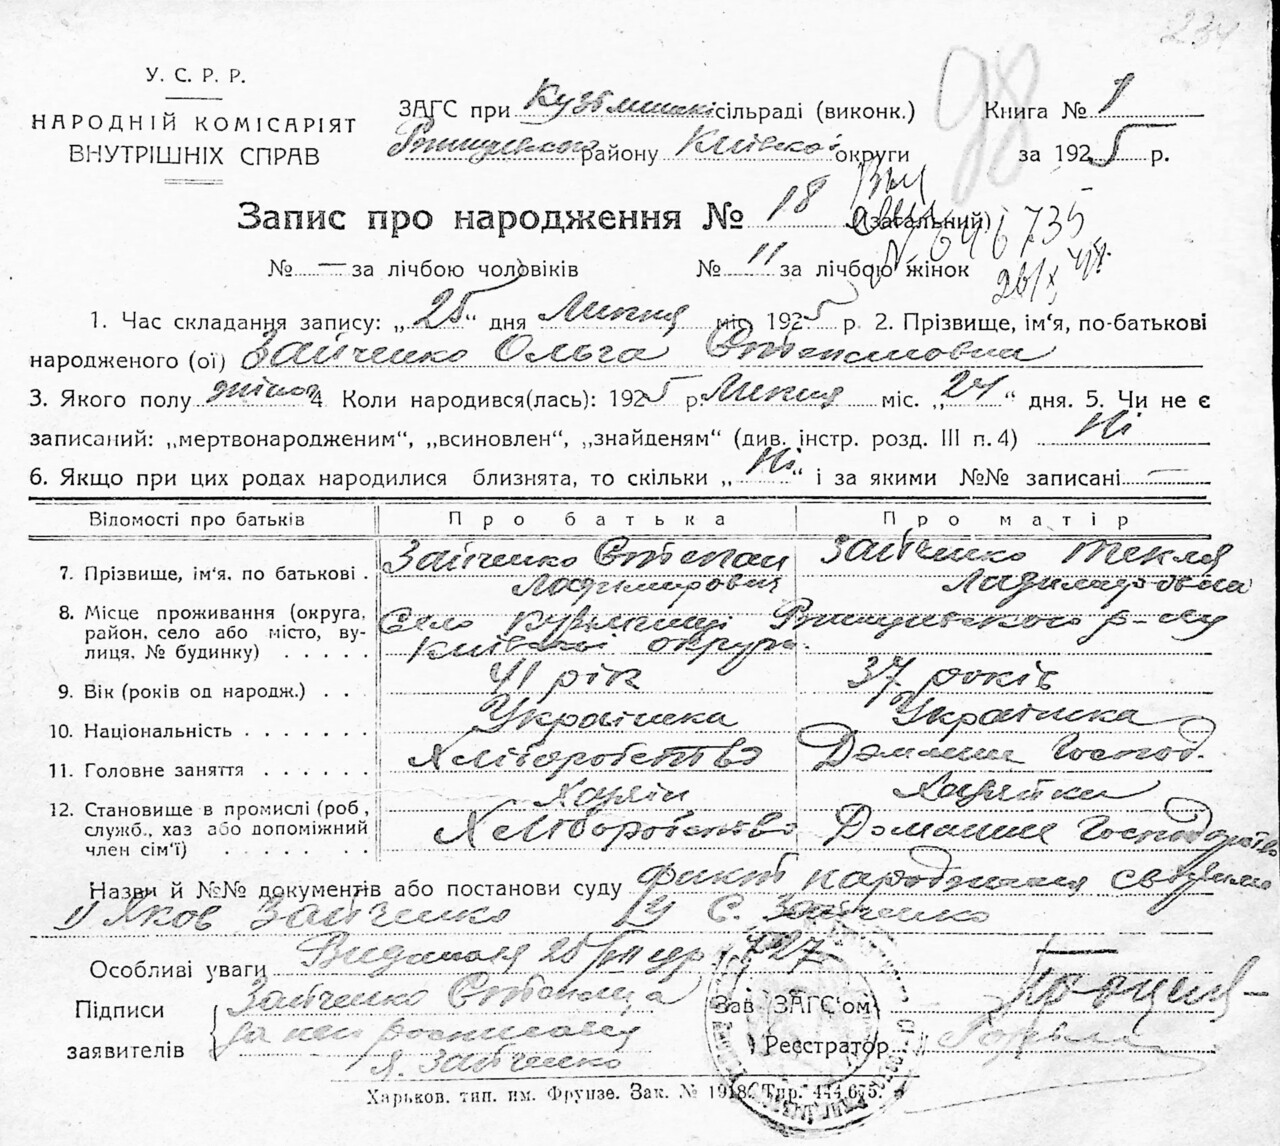 234
У. С. Р. Р.
НАРОДНІЙ КОМІСАРІЯТ
ВНУТРІШНІХ СПРАВ
98
ЗАГС при сільраді (виконк.) Книга № 1
району Київської округи за 1925 р.
Запис про народження № 18 (загальний)
646735
№ — за лічбою чоловіків № 11 за лічбою жінок
1. Час складання запису: „25“ дня Липня міс. 1925 р. 2. Прізвище, ім‘я, по-батькові
народженого (ої) Зайченко Ольга Степановна
3. Якого полу жіноч 4. Коли народився(лась): 1925 р. Липня міс. „24“ дня. 5. Чи не є
записаний: „мертвонародженим“, „всиновлен“, „знайденям“ (див. інстр. розд. III п. 4) Ні
6. Якщо при цих родах народилися близнята, то скільки „Ні“ і за якими №№ записані —
Відомості про батьків Про батька Про матір
7. Прізвище, ім‘я, по батькові . Зайченко Степан Зайченко Текля
Ладимирович Ладимировна
8. Місце проживання (округа, район, село або місто, вулиця, № будинку) . . . . . Село р-ну
Київської округи
9. Вік (років од народж.) . . . 41 рік 37 років
10. Національність . . . . . . . Українка Українка
11. Головне заняття . . . . . . Хліборобство Домашнє Господ.
12. Становище в промислі (роб., служб., хаз або допоміжний член сім‘ї) . . . . . . . Хазяїн Хазяйка
Хліборобство Домашнє Господарство
Назви й №№ документів або постанови суду факт народження
1) Яков Зайченко 2) С. Зайченко
Особливі уваги
Підписи заявителів Зайченко Степана
за неи росписався
Я. Зайченко
Зав ЗАГС‘ом
Реєстратор
Харьков. тип. им. Фрунзе. Зак. № 1918. Тир. 444.675.